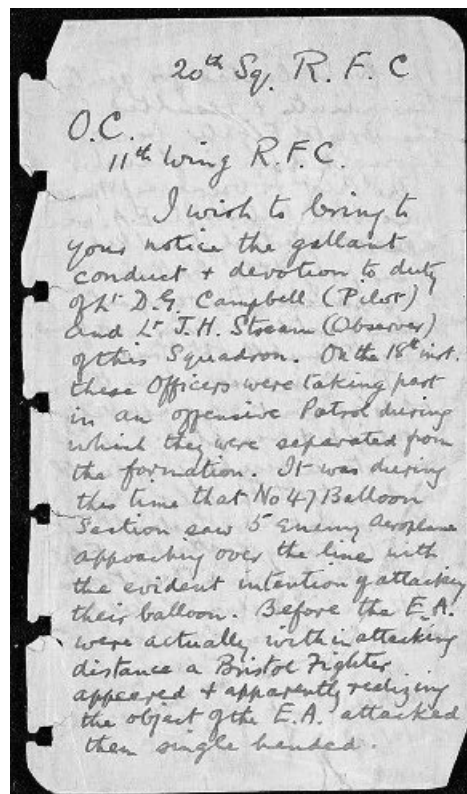 20th Sq. R. F. C
O.C.
11th Wing R.F.C.
I wish to bring to
your notice the gallant
conduct + devotion to duty
of Lt D.G. Campbell (Pilot)
and Lt J.H. Stream (Observer)
of this Squadron. On the 18th inst.
these Officers were taking part
in an offensive Patrol during
which they were separated from
the formation. It was during
this time that No 47 Balloon
Section saw 5 Enemy Aeroplane
approaching over the line with
the evident intention of attacking
their balloon. Before the E.A.
were actually within attacking
distance a Bristol Fighter
appeared + apparently realizing
the object of the E.A. attacked
them single handed.